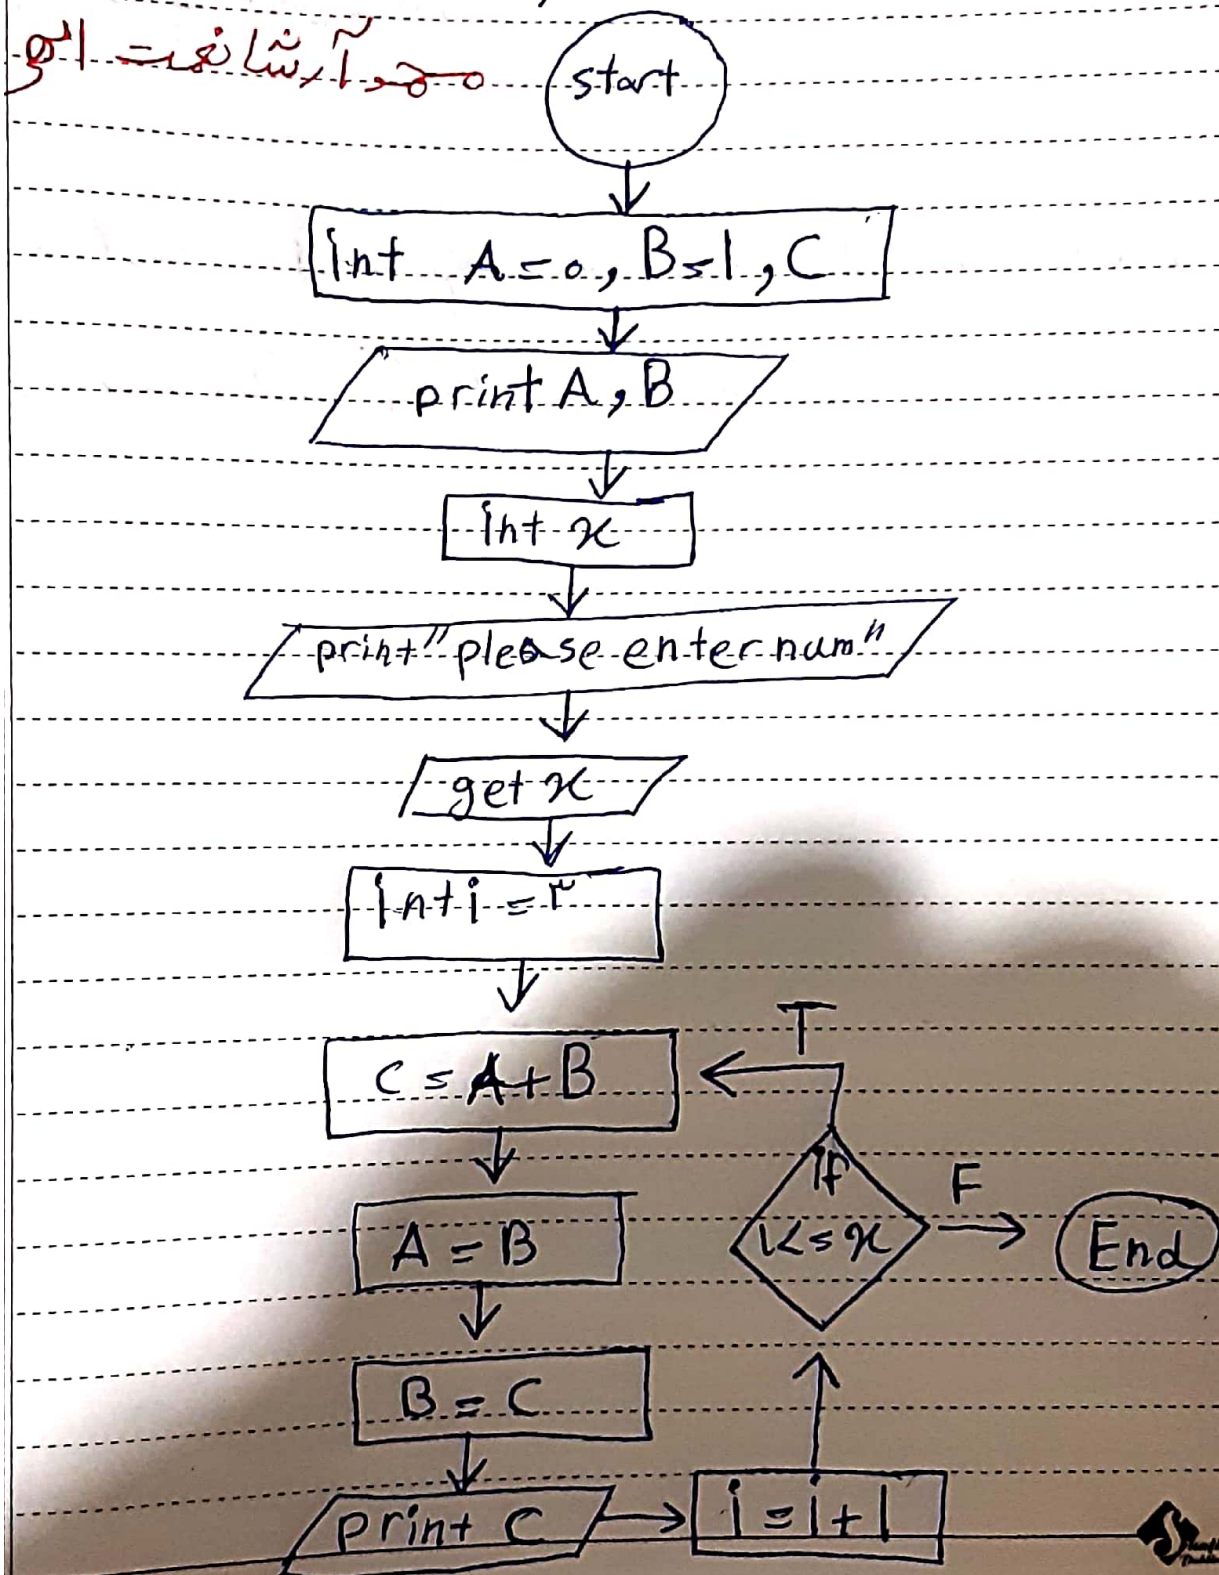 محمد آرشا نعمت الهی
start
int A=0, B=1, C
print A, B
int x
print "please enter num"
get x
int i=۳
C=A+B
T
If
F
A=B
i<=x
End
B=C
print C
i=i+1